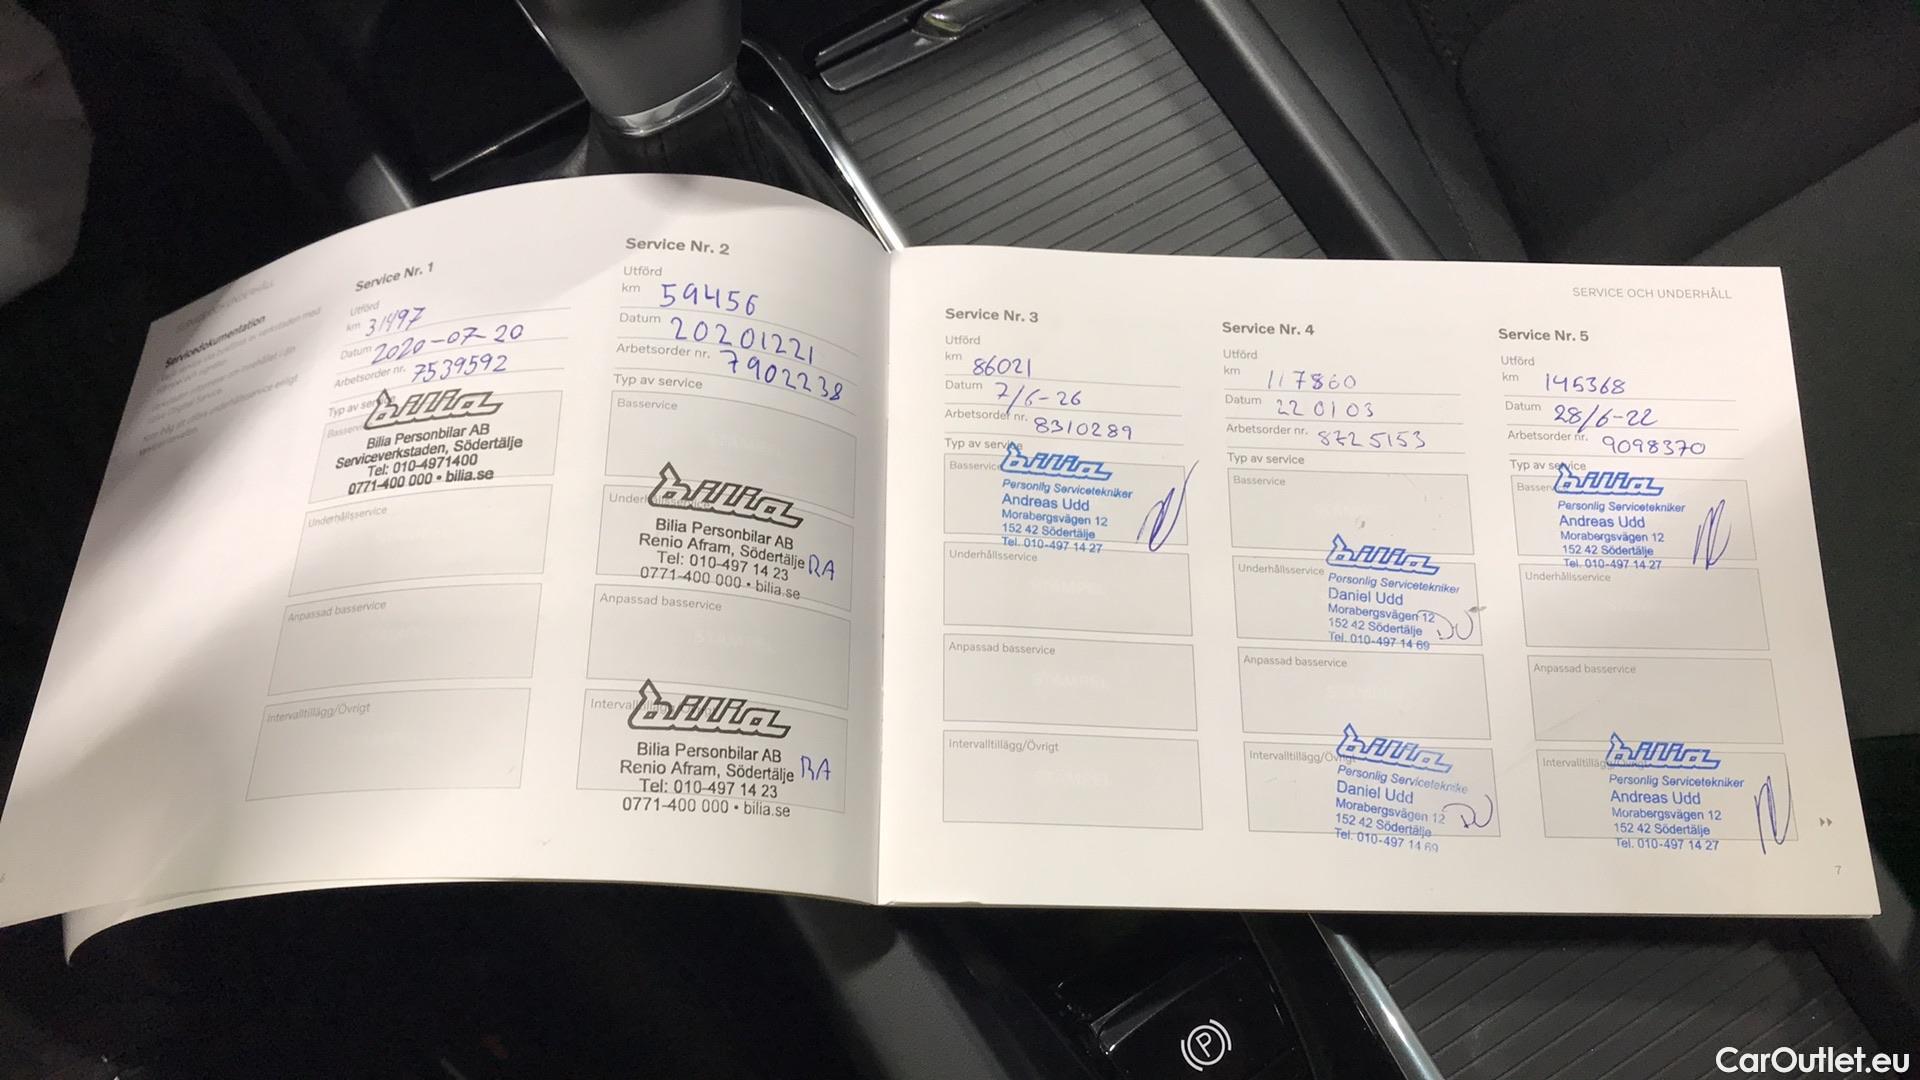 SERVICE OCH UNDERHÅLL
Servicedokumentation
Service Nr. 1
Utförd
km 31497
Datum 2020-07-20
Arbetsorder nr. 7539592
Typ av service
bilia
Bilia Personbilar AB
Serviceverkstaden, Södertälje
Tel: 010-4971400
0771-400 000 • bilia.se
Underhållsservice
Anpassad basservice
Intervalltillägg/Övrigt
Service Nr. 2
Utförd
km 59456
Datum 20201221
Arbetsorder nr. 7902238
Typ av service
Basservice
bilia
Bilia Personbilar AB
Renio Afram, Södertälje RA
Tel: 010-497 14 23
0771-400 000 • bilia.se
Anpassad basservice
bilia
Bilia Personbilar AB
Renio Afram, Södertälje RA
Tel: 010-497 14 23
0771-400 000 • bilia.se
SERVICE OCH UNDERHÅLL
Service Nr. 3
Utförd
km 86021
Datum 7/6-26
Arbetsorder nr. 8310289
Typ av service
Basservice
bilia
Personlig Servicetekniker
Andreas Udd
Morabergsvägen 12
152 42 Södertälje
Tel. 010-497 14 27
Underhållsservice
Anpassad basservice
Intervalltillägg/Övrigt
Service Nr. 4
Utförd
km 117860
Datum 220103
Arbetsorder nr. 8725153
Typ av service
Basservice
Underhållsservice
bilia
Personlig Servicetekniker
Daniel Udd
Morabergsvägen 12
152 42 Södertälje DU
Tel. 010-497 14 69
Anpassad basservice
Intervalltillägg/Övrigt
bilia
Personlig Servicetekniker
Daniel Udd
Morabergsvägen 12 DU
152 42 Södertälje
Tel. 010-497 14 69
Service Nr. 5
Utförd
km 145368
Datum 28/6-22
Arbetsorder nr. 9098370
Typ av service
bilia
Personlig Servicetekniker
Andreas Udd
Morabergsvägen 12
152 42 Södertälje
Tel. 010-497 14 27
Underhållsservice
Anpassad basservice
bilia
Personlig Servicetekniker
Andreas Udd
Morabergsvägen 12
152 42 Södertälje
Tel. 010-497 14 27
7
P
CarOutlet.eu